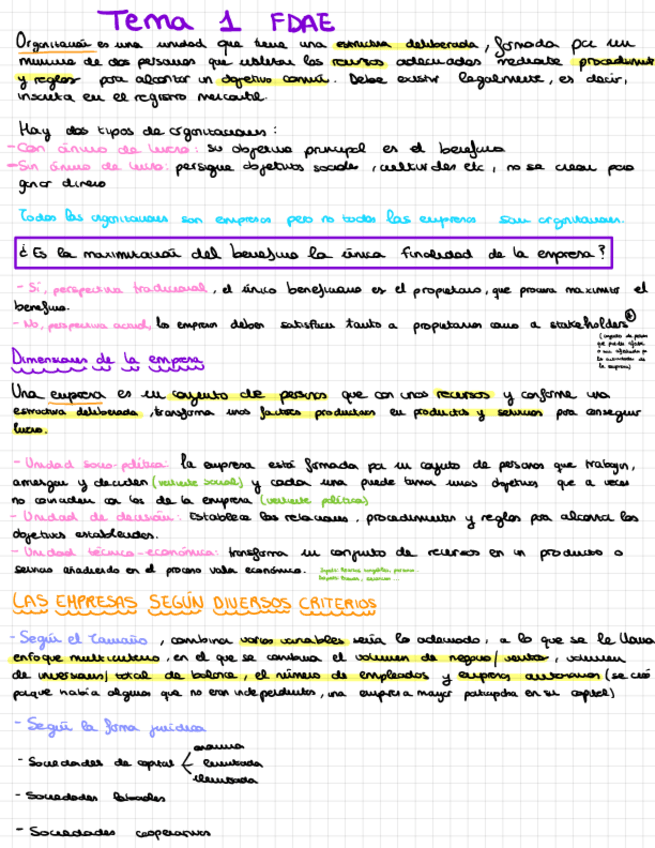 Tema 1 FDAE
Organización es una unidad que tiene una estructura deliberada, formada por un
mínimo de dos personas que utilizan los recursos adecuados mediante procedimient
y reglas para alcanzar un objetivo común. Debe existir legalmente, es decir,
inscrita en el registro mercantil.
Hay dos tipos de organizaciones:
- Con ánimo de lucro: su objetivo principal es el beneficio
- Sin ánimo de lucro: persigue objetivos sociales, culturales etc, no se crean para
ganar dinero
Todas las organizaciones son empresas pero no todas las empresas son organizaciones.
¿Es la maximización del beneficio la única finalidad de la empresa?
- Sí, perspectiva tradicional, el único beneficiario es el propietario, que procura maximizar el
beneficio.
- No, perspectiva actual, las empresas deben satisfacer tanto a propietarios como a stakeholders
(conjunto de
que puede
la empresa)
Dimensiones de la empresa
Una empresa es un conjunto de personas que con unos recursos y conforme una
estructura deliberada, transforma unos factores productivos en productos y servicios para conseguir
lucro.
- Unidad socio-política: la empresa está formada por un conjunto de personas que trabajan,
arriesgan y deciden (vertiente social) y cada una puede tener unos objetivos que a veces
no coinciden con los de la empresa (vertiente política)
- Unidad de decisión: Establece las relaciones, procedimientos y reglas para alcanzar los
objetivos establecidos.
- Unidad técnico-económica: transforma un conjunto de recursos en un producto o
servicio añadiendo en el proceso valor económico.
LAS EMPRESAS SEGÚN DIVERSOS CRITERIOS
- Según el tamaño, combinar varias variables sería lo adecuado, a lo que se le llama
enfoque multicriterio, en el que se combina el volumen de negocio/ventas, volumen
de inversiones/total de balance, el número de empleados y empresas autónomas (se creó
porque había algunas que no eran independientes, una empresa mayor participaba en su capital)
- Según la forma jurídica
- Sociedades de capital
anónima
limitada
ilimitada
- Sociedades laborales
- Sociedades cooperativas